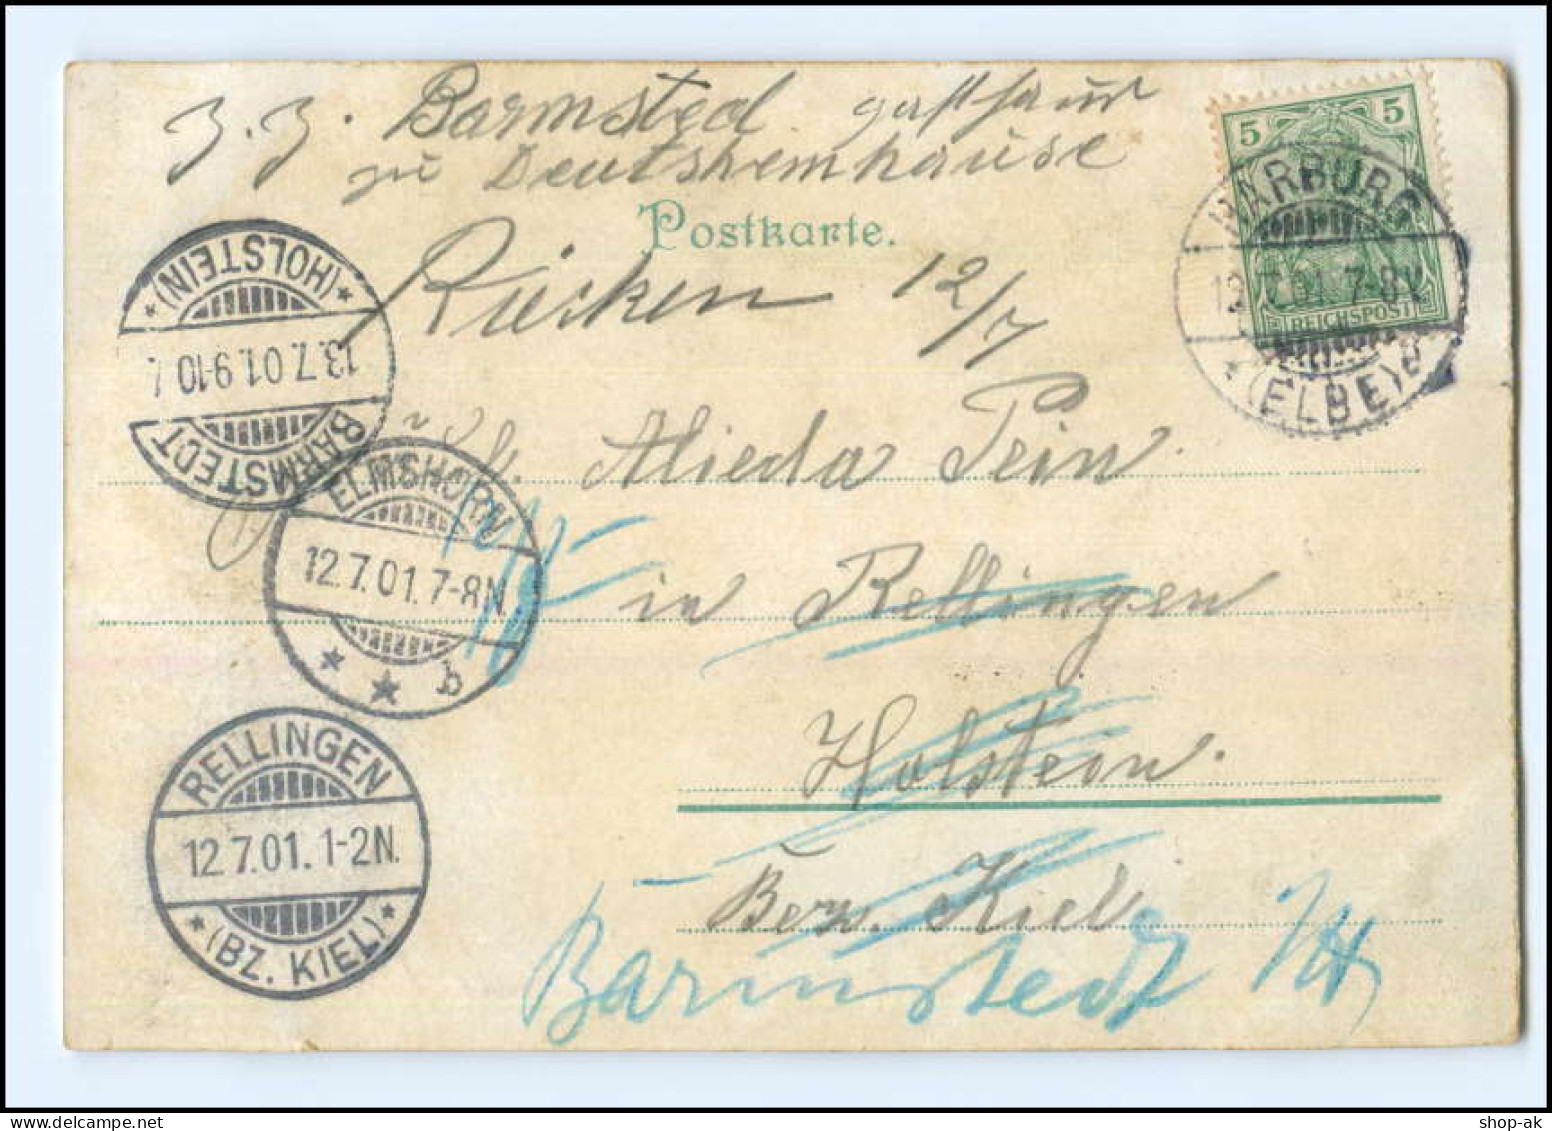 z. Z. Barmsted gasthaus
zu Deutshemhause
Postkarte.
12/7
Alieda Pein
in Rellingen
Holstein.
Bez. Kiel.
Barmstedt
5 5
REICHSPOST
HARBURG
12.7.01.7-8V.
* (ELBE)
BARMSTEDT
13.7.01.9-10
* (HOLSTEIN) *
ELMSHORN
12.7.01.7-8N.
* * b
RELLINGEN
12.7.01.1-2N.
* (BZ. KIEL) *
shop-ak